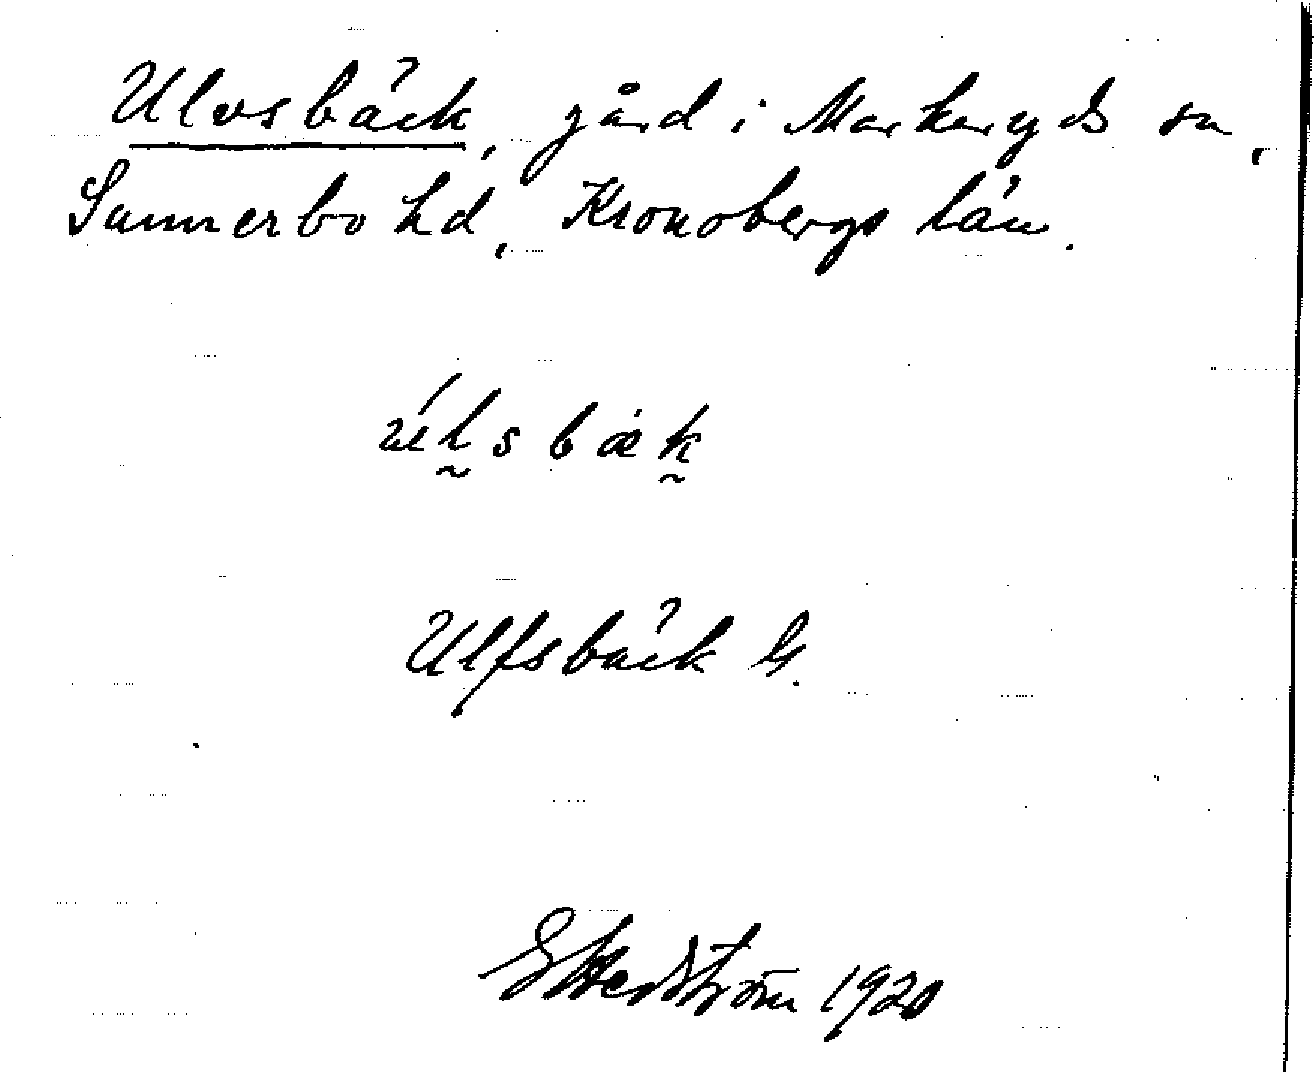 Ulvsbäck, gård i Markaryds sn,
Sunnerbo hd, Kronobergs län.
Ulfsbäck G.
1920